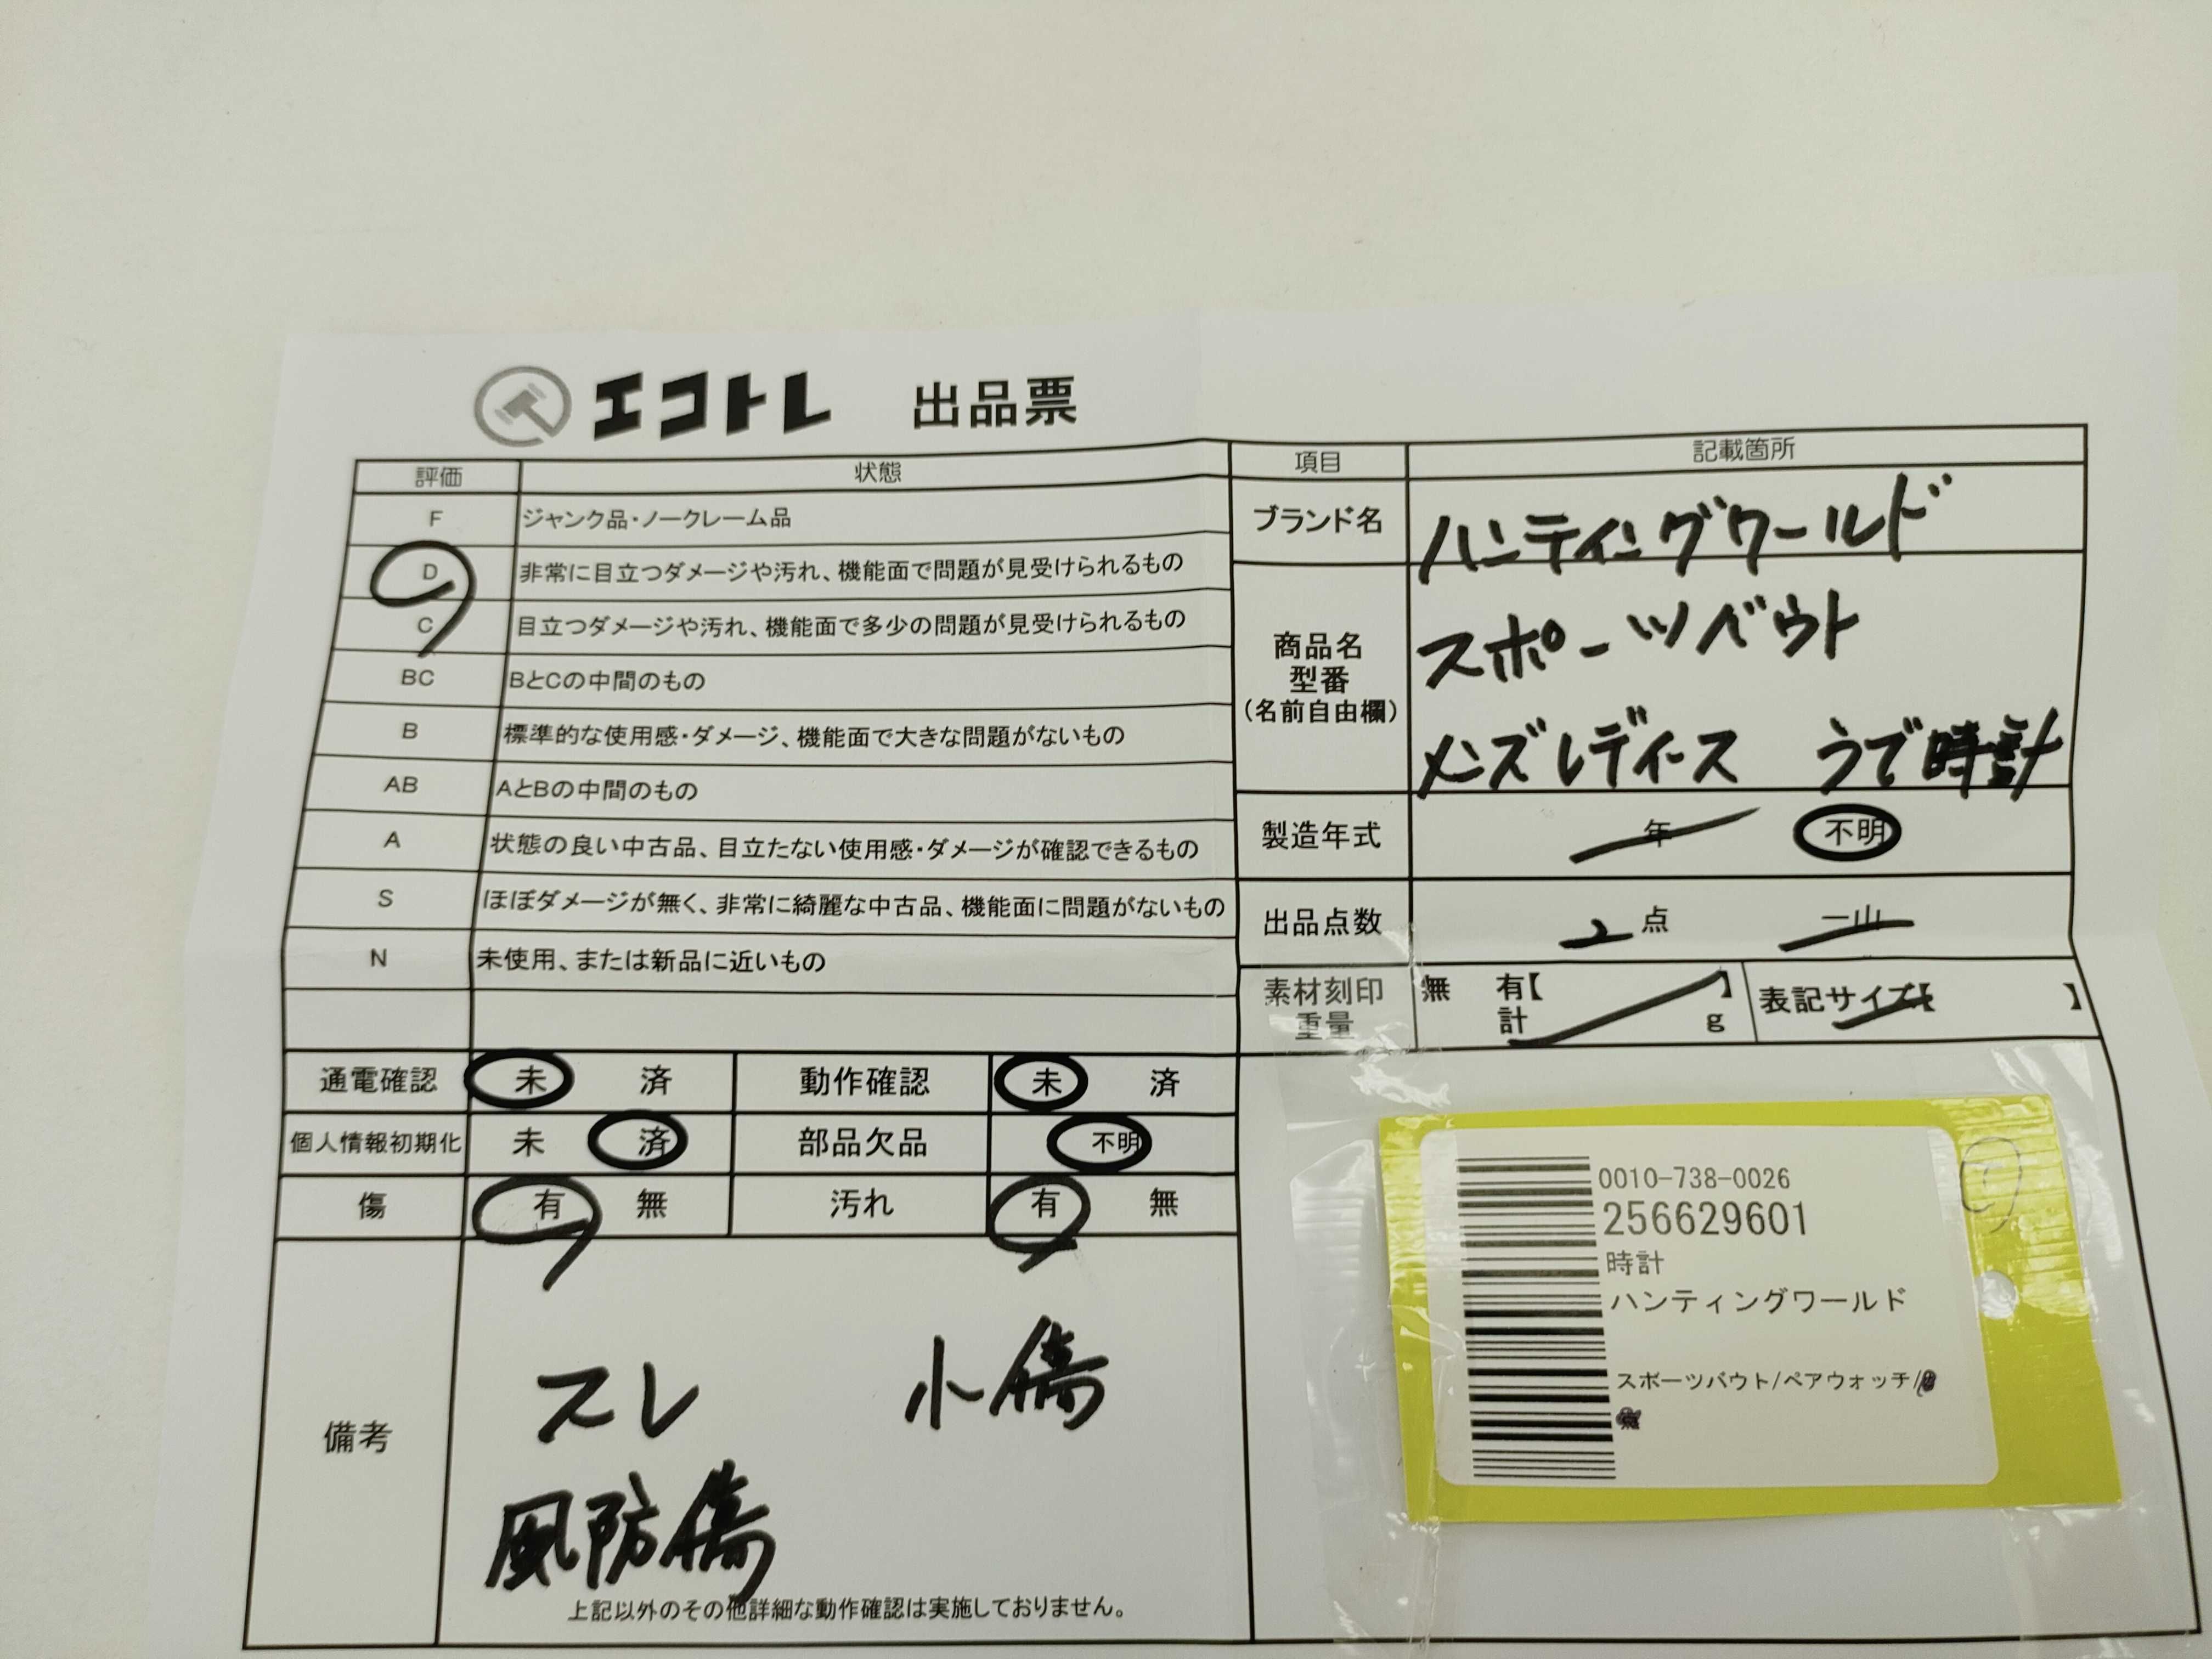 エコトレ 出品票
評価 状態
F ジャンク品・ノークレーム品
D 非常に目立つダメージや汚れ、機能面で問題が見受けられるもの
C 目立つダメージや汚れ、機能面で多少の問題が見受けられるもの
BC BとCの中間のもの
B 標準的な使用感・ダメージ、機能面で大きな問題がないもの
AB AとBの中間のもの
A 状態の良い中古品、目立たない使用感・ダメージが確認できるもの
S ほぼダメージが無く、非常に綺麗な中古品、機能面に問題がないもの
N 未使用、または新品に近いもの
通電確認 未 済 動作確認 未 済
個人情報初期化 未 済 部品欠品 不明
傷 有 無 汚れ 有 無
備考
スレ 小傷
風防傷
上記以外のその他詳細な動作確認は実施しておりません。
項目 記載箇所
ブランド名 ハンティングワールド
商品名
型番
(名前自由欄)
スポーツバウト
メンズレディース うで時計
製造年式 年 不明
出品点数 2点 一山
素材刻印 無 有【 】 表記サイズ【 】
重量 計 g
0010-738-0026
256629601
時計
ハンティングワールド
スポーツバウト/ペアウォッチ/